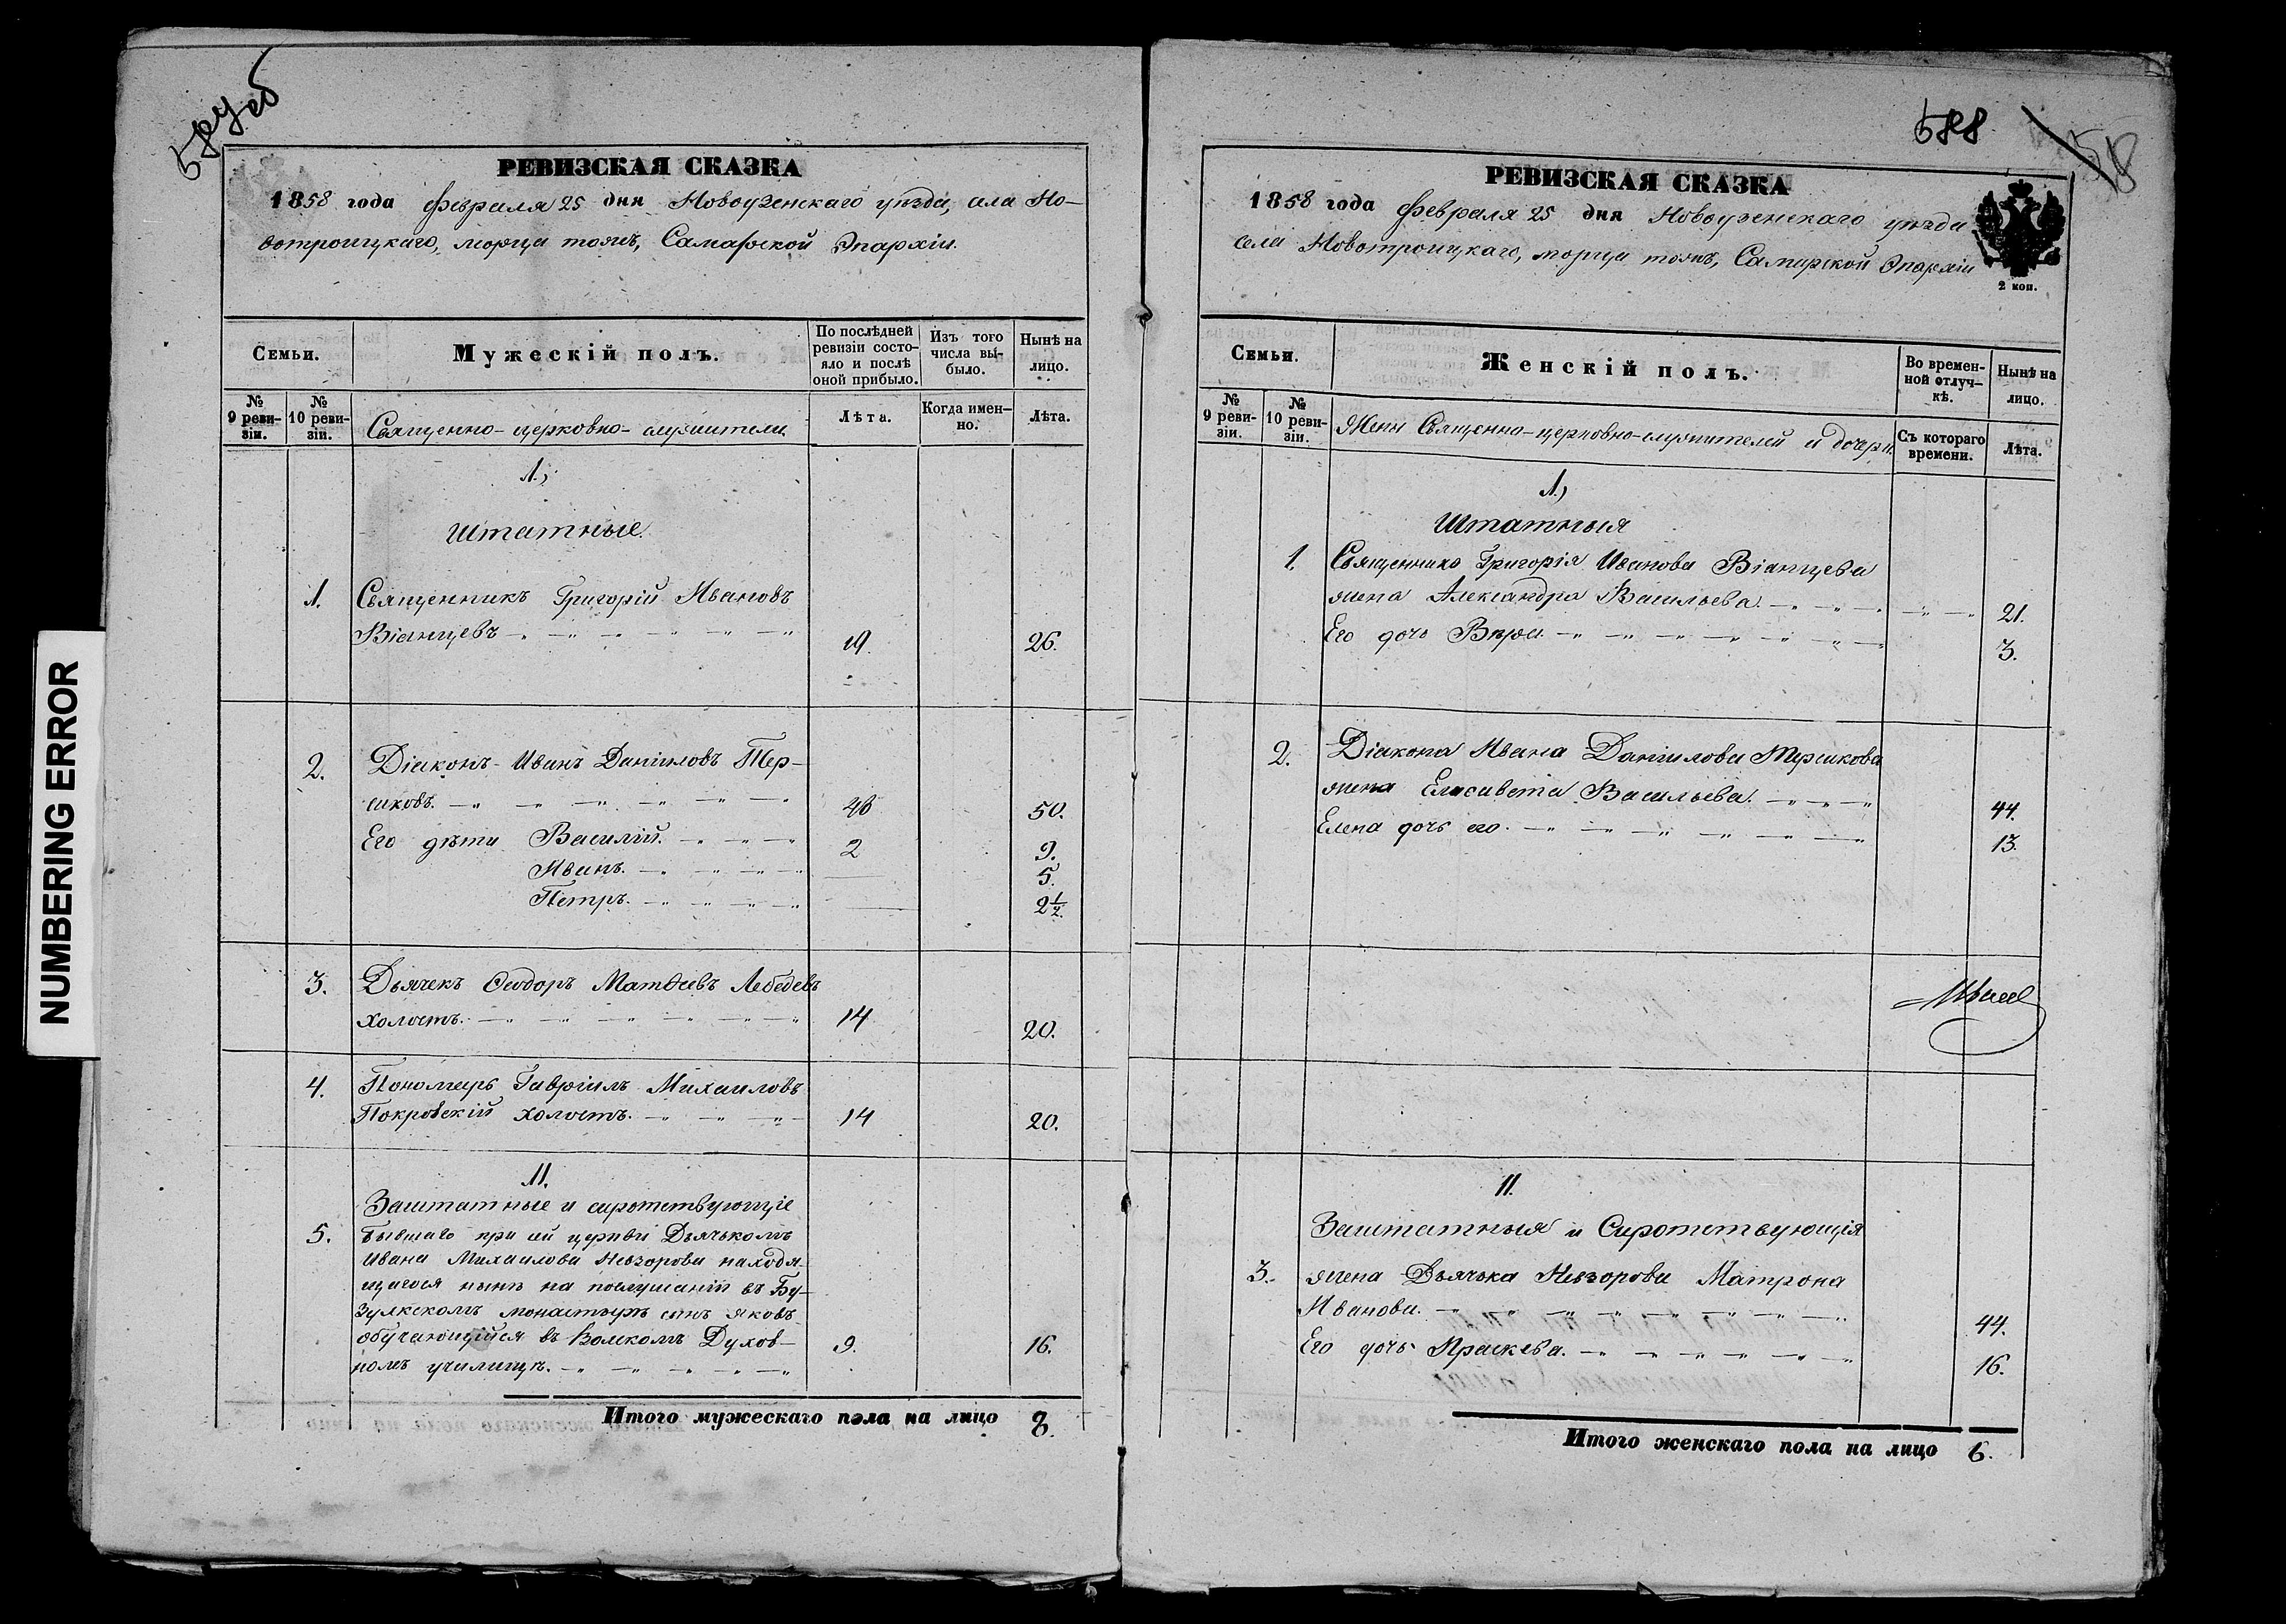 NUMBERING ERROR
РЕВИЗСКАЯ СКАЗКА
1858 года Февраля 25 дня Новоузенскаго уѣзда, села Но-
вотроицкаго, тожъ, Самарской Епархіи.
Семьи.
Мужескій полъ.
По послѣдней ревизіи состо-яло и послѣ оной прибыло.
Изъ того числа вы-было.
Нынѣ на лицо.
№ 9 реви-зіи.
№ 10 реви-зіи.
Священно-церковно-служители
Лѣта.
Когда имен-но.
Лѣта.
1.,
Штатные.
1. Священникъ Григорій Ивановъ
Віанцевъ 19. 26.
2. Діаконъ Иванъ Даніиловъ Тер-
сиковъ. 50.
Его дѣти Василій. 2 9.
Иванъ. 5.
Петръ. 2½.
3. Дьячекъ Ѳеодоръ Матѳеевъ Лебедевъ
холостъ. 14 20.
4. Пономарь Гавріилъ Михаиловъ
Покровскій холостъ. 14 20.
11.
Заштатные и сиротствующіе
5. Бывшаго при сей церкви Дьячькомъ
Ивана Михаилова Невзорова находя-
щагося нынѣ на послушаніи въ Бу-
зулкскомъ монастырѣ сынъ Яковъ
обучающійся въ Духов-
номъ училищѣ. 9. 16.
Итого мужескаго пола на лицо 8.
588
РЕВИЗСКАЯ СКАЗКА
1858 года Февраля 25 дня Новоузенскаго уѣзда
села Новотроицкаго, тожъ, Самарской Епархіи
2 коп.
Семьи.
Женскій полъ.
Во времен-ной отлуч-кѣ.
Нынѣ на лицо.
№ 9 реви-зіи.
№ 10 реви-зіи.
Жены Священно-церковно-служителей и дочери.
Съ котораго времени.
Лѣта.
1.,
Штатныя
1. Священника Григорія Иванова Віанцева
жена Александра Васильева. 21.
Его дочь Вѣра. 3.
2. Діакона Ивана Даніилова Терсикова
жена Елисавета Васильева. 44.
Елена дочь его. 13.
11.
Заштатныя и Сиротствующія
3. жена Дьячька Невзорова Матрона
Иванова. 44.
Его дочь Праскева. 16.
Итого женскаго пола на лицо 6.